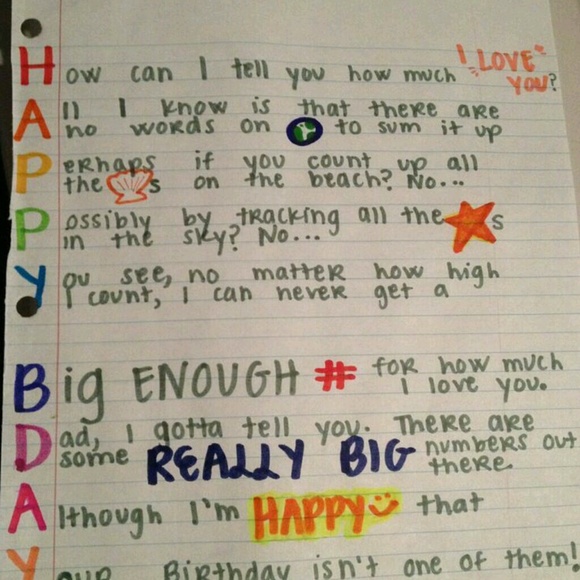 How can I tell you how much I LOVE YOU?
All I know is that there are
no words on to sum it up
Perhaps if you count up all
the s on the beach? No...
Possibly by tracking all the s
in the sky? No...
You see, no matter how high
I count, I can never get a
Big ENOUGH # for how much
I love you.
Dad, I gotta tell you. There are
some REALLY BIG numbers out
there.
Although I'm HAPPY that
Your Birthday isn't one of them!